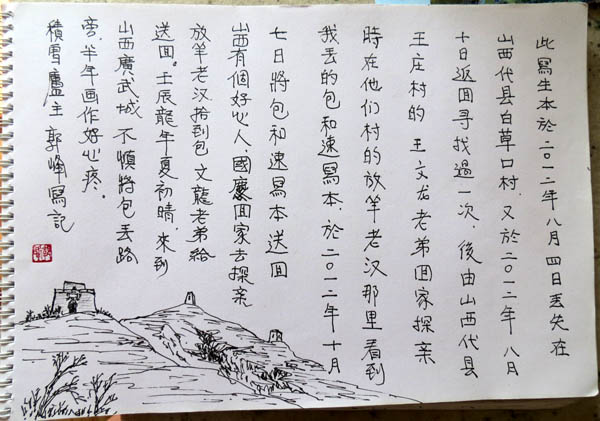 此寫生本於二〇一二年八月四日丟失在
山西代县白草口村，又於二〇一二年八月
十日返回寻找過一次，後由山西代县
王庄村的王文龙老弟回家探亲
時在他们村的放羊老汉那里看到
我丢的包和速寫本，於二〇一二年十月
七日將包和速寫本送回
山西有個好心人，國慶回家去探亲
放羊老汉拾到包，文龍老弟給
送回。壬辰龍年夏初晴，來到
山西廣武城，不慎將包丢路
旁，半年画作好心疼。
積雪廬主郭峰寫記